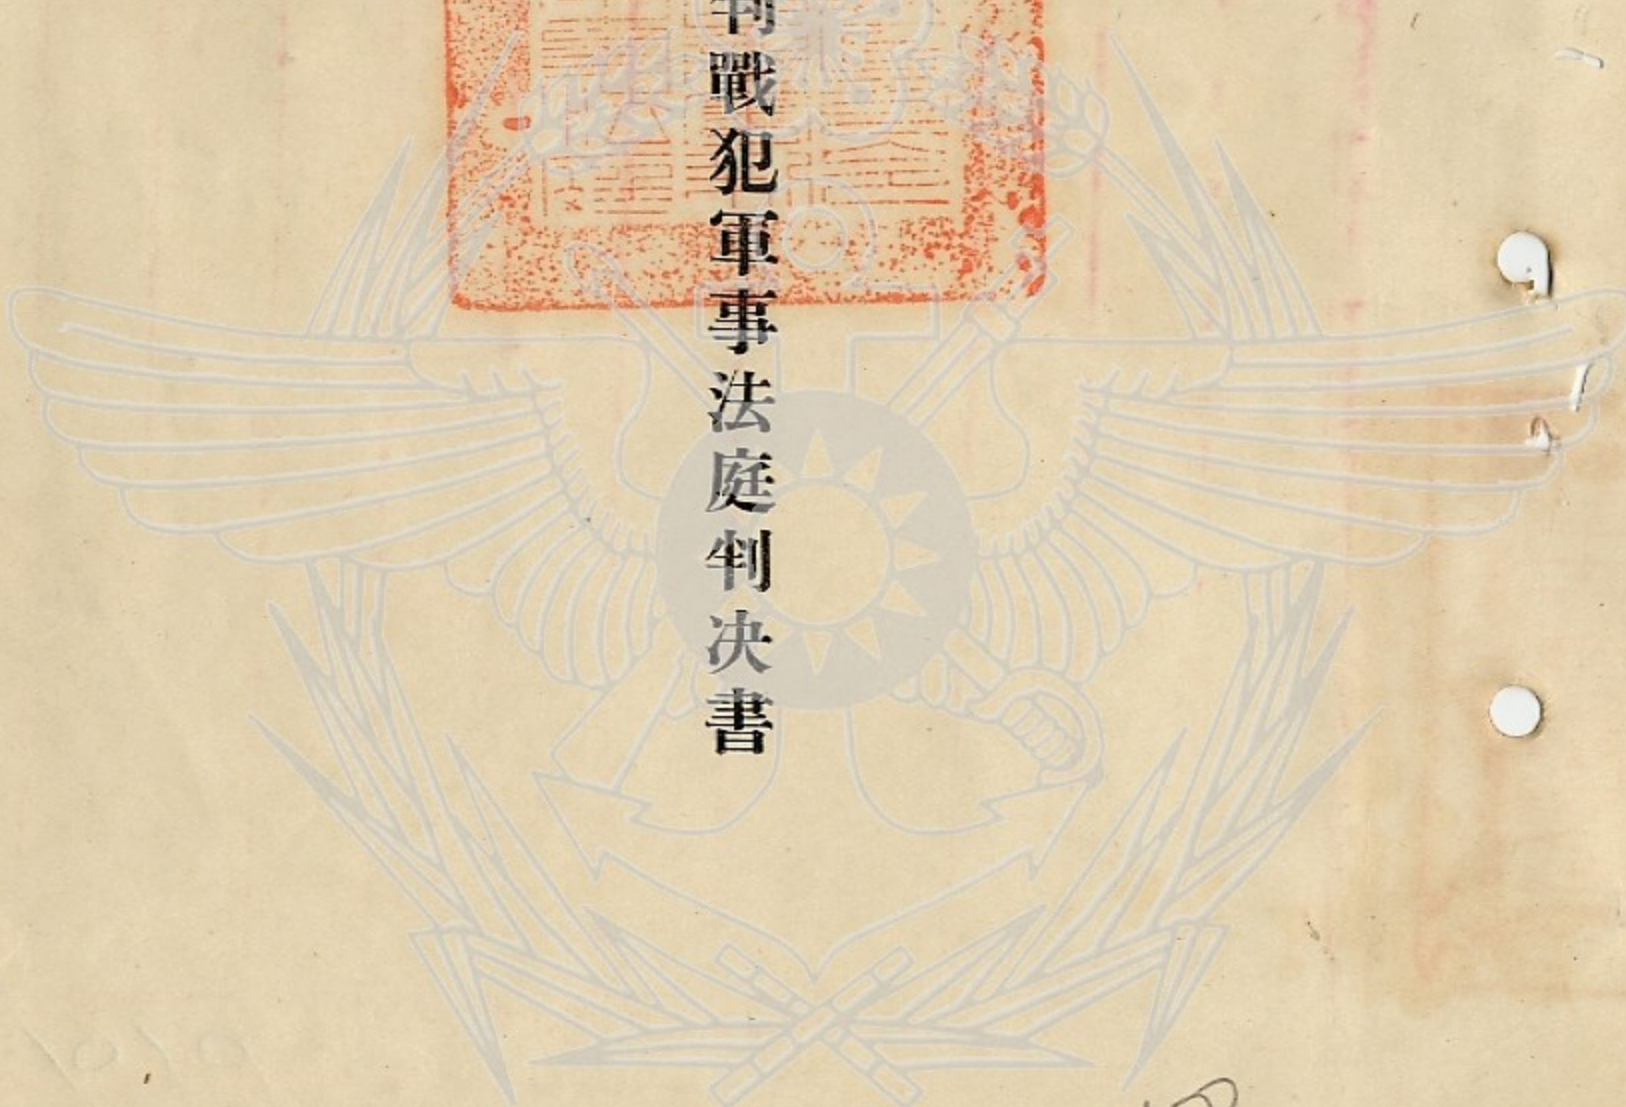 判戰犯軍事法庭判决書